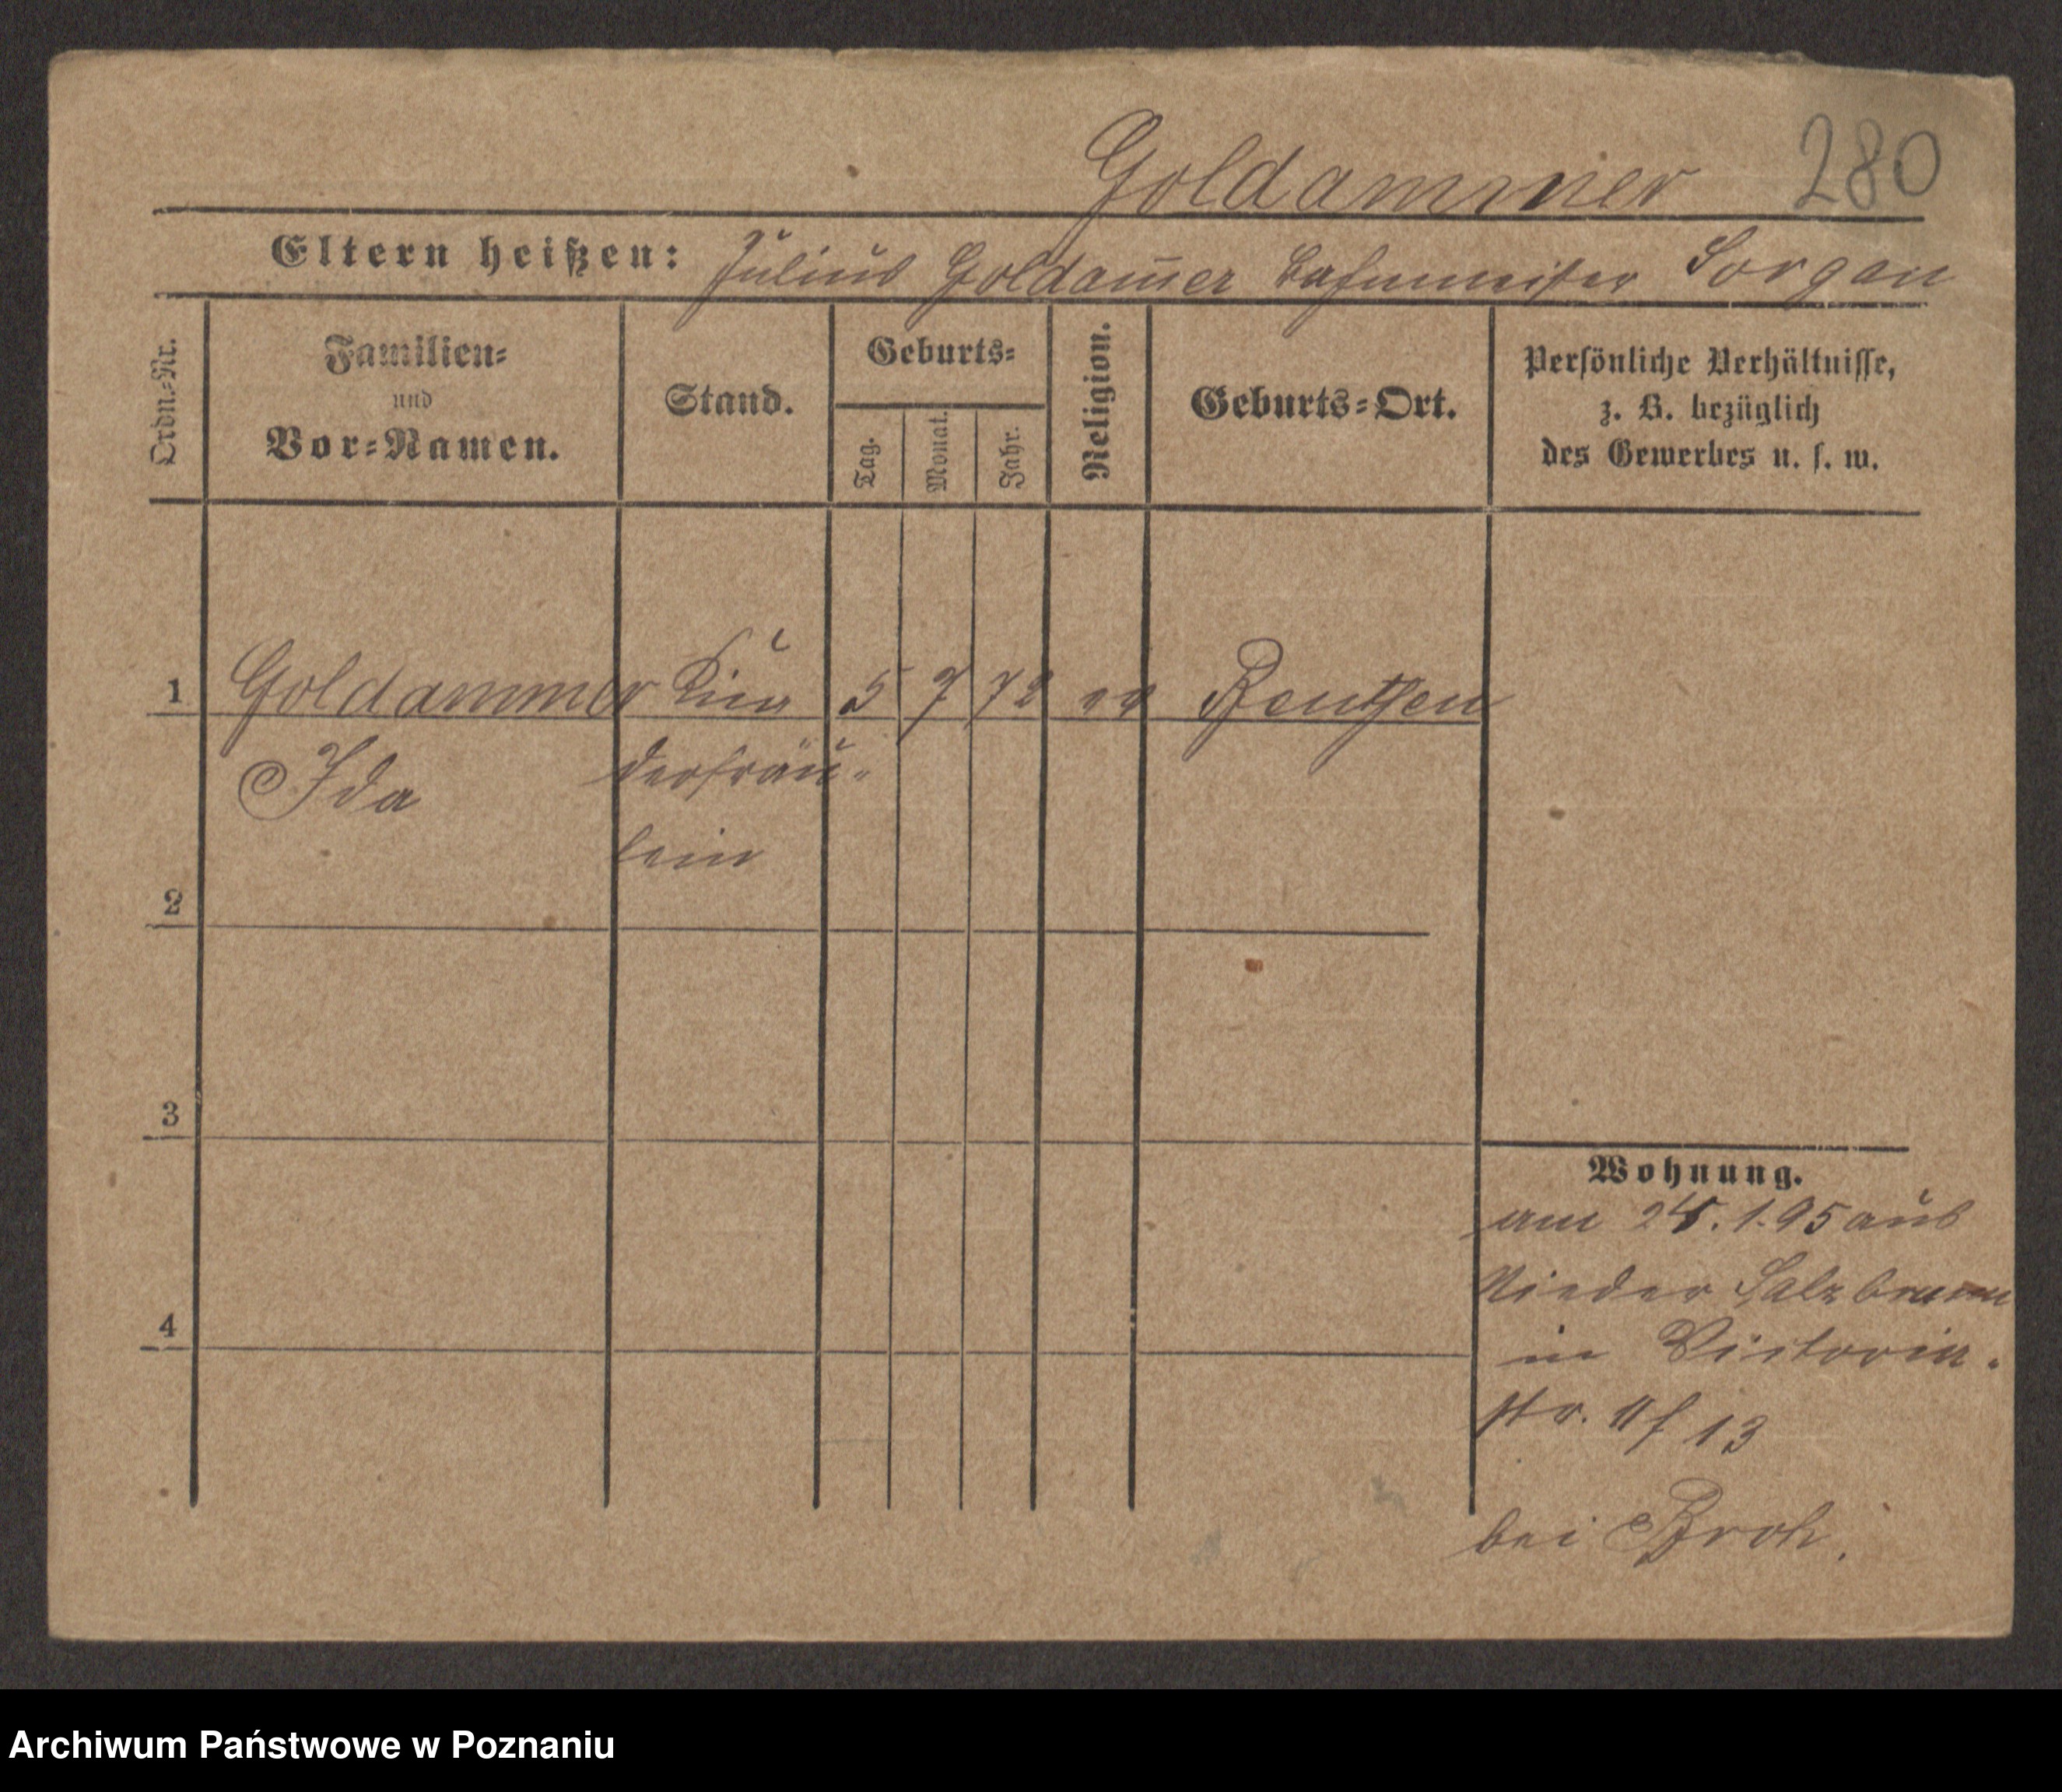 Goldammer 280
Eltern heißen: Julius Goldam̄er Bahnmeister Sorgau
Ordn.=Nr.
Familien=
und
Vor=Namen.
Stand.
Geburts=
Tag.
Monat.
Jahr.
Religion.
Geburts=Ort.
Persönliche Verhältnisse,
z. B. bezüglich
des Gewerbes u. s. w.
1 Goldammer Kin 5 7 72 ev Beuthen
Ida derfräu=
lein
2
3
4
Wohnung.
am 24.1.95 aus
Nieder Salzbrunn
in Victoria=
str. 13
bei Broh.
Archiwum Państwowe w Poznaniu